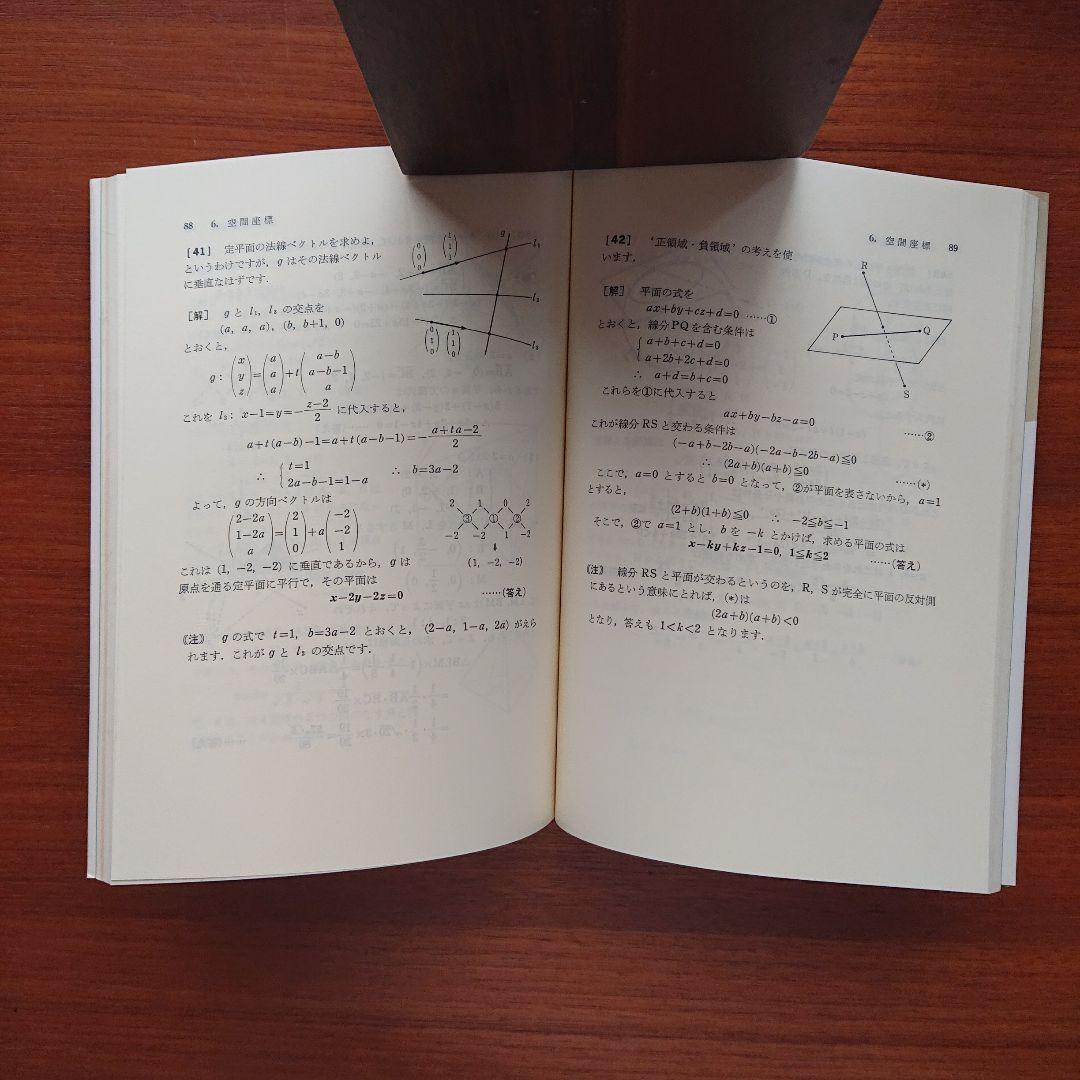 88 6. 空間座標
[41] 定平面の法線ベクトルを求めよ,
というわけですが, g はその法線ベクトル
に垂直なはずです.
[解] g と l₁, l₂ の交点を
(a, a, a), (b, b+1, 0)
とおくと,
g: (x y z)=(a a a)+t(a-b a-b-1 a)
これを l₃: x-1=y=-(z-2)/2 に代入すると,
a+t(a-b)-1=a+t(a-b-1)=-(a+ta-2)/2
∴ {t=1 2a-b-1=1-a ∴ b=3a-2
よって, g の方向ベクトルは
(2-2a 1-2a a)=(2 1 0)+a(-2 -2 1)
2 1 0 2
③ ① ②
-2 -2 1 -2
↓
(1, -2, -2)
これは (1, -2, -2) に垂直であるから, g は
原点を通る定平面に平行で, その平面は
x-2y-2z=0 ……(答え)
《注》 g の式で t=1, b=3a-2 とおくと, (2-a, 1-a, 2a) がえら
れます. これが g と l₃ の交点です.
g
l₁
(0 0 0) (1 1 1)
l₃
(0 1 0) (1 1 0)
6. 空間座標 89
[42] ‘正領域・負領域’の考えを使
います.
[解] 平面の式を
ax+by+cz+d=0 ……①
とおくと, 線分PQを含む条件は
{a+b+c+d=0
a+2b+2c+d=0
∴ a+d=b+c=0
これらを①に代入すると
ax+by-bz-a=0 ……②
これが線分 RS と交わる条件は
(-a+b-2b-a)(-2a-b-2b-a)≦0
∴ (2a+b)(a+b)≦0 ……(*)
ここで, a=0 とすると b=0 となって, ②が平面を表さないから, a=1
とすると,
(2+b)(1+b)≦0 ∴ -2≦b≦-1
そこで, ②で a=1 とし, b を -k とかけば, 求める平面の式は
x-ky+kz-1=0, 1≦k≦2 ……(答え)
《注》 線分 RS と平面が交わるというのを, R, S が完全に平面の反対側
にあるという意味にとれば, (*)は
(2a+b)(a+b)<0
となり, 答えも 1<k<2 となります.
R
P
Q
S